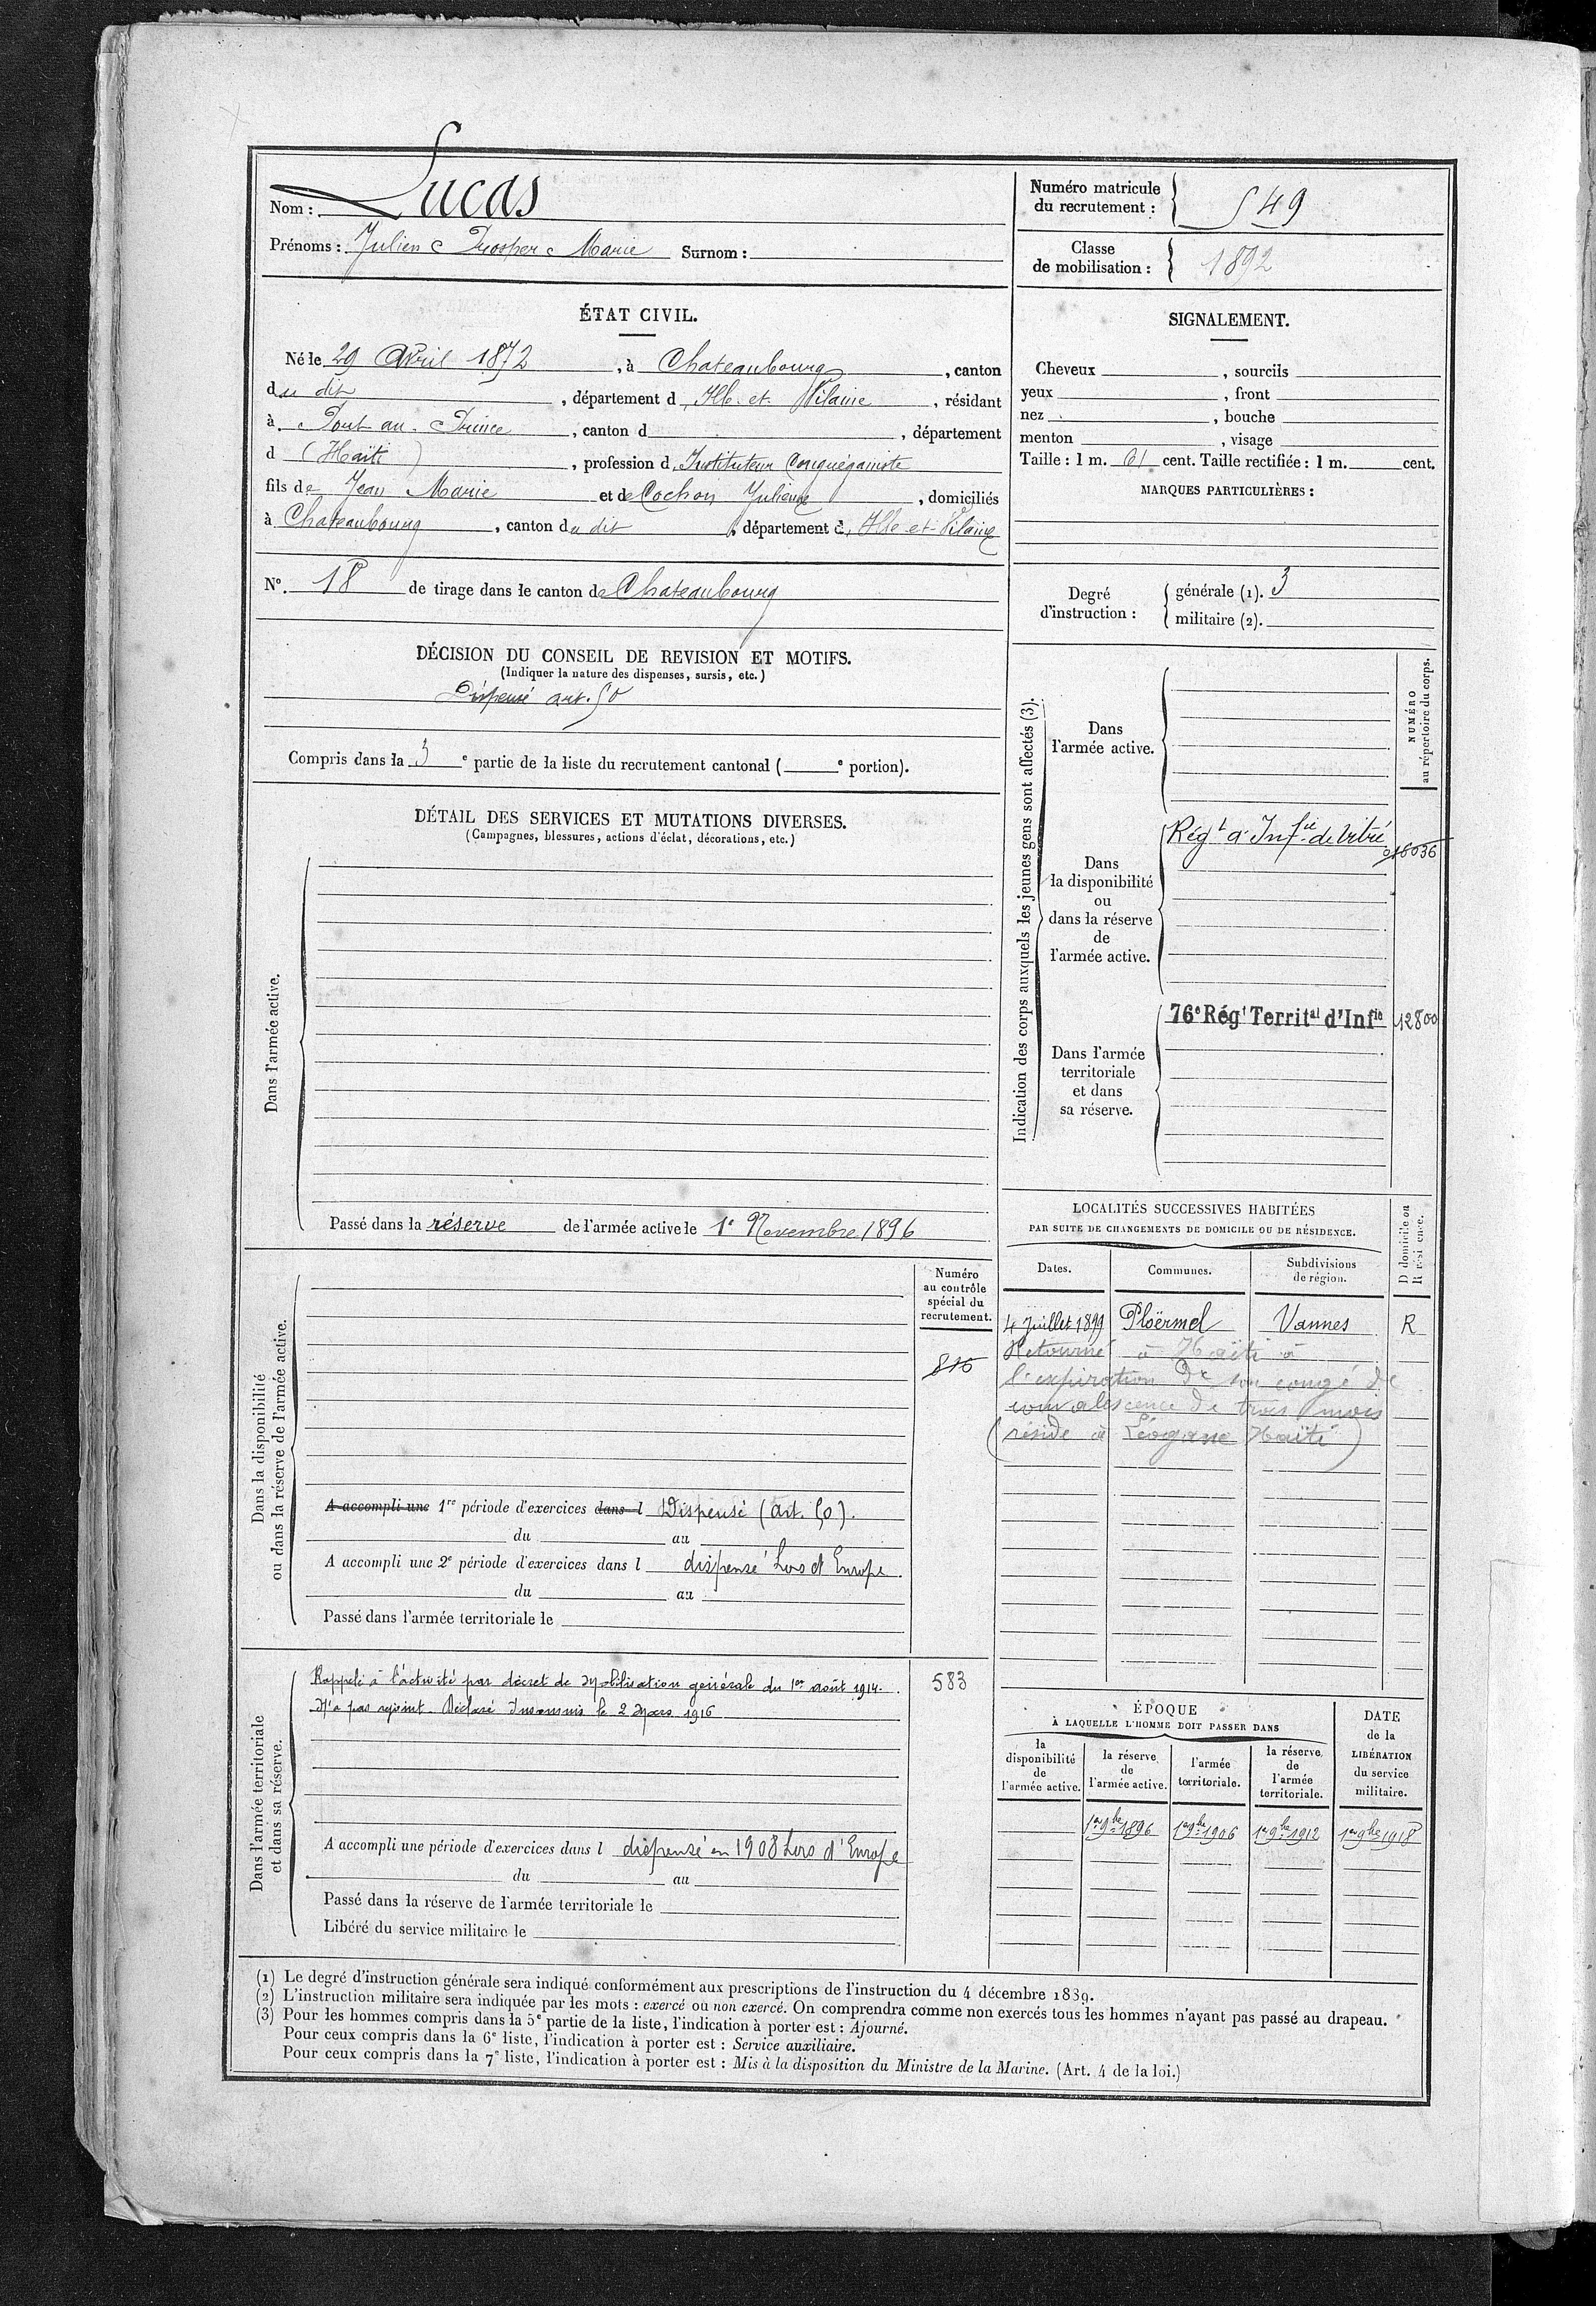 Nom : Lucas
Prénoms : Julien Prosper Marie Surnom :
Numéro matricule du recrutement : 549
Classe de mobilisation : 1892
ÉTAT CIVIL.
Né le 29 Avril 1872, à Chateaubourg, canton
du dit, département d'Ille-et-Vilaine, résidant
à Port au Prince, canton d , département
d (Haïti), profession d'Instituteur Congréganiste
fils de Jean Marie et de Cochon Julienne, domiciliés
à Chateaubourg, canton du dit, département d'Ille-et-Vilaine
N° 18 de tirage dans le canton de Chateaubourg
DÉCISION DU CONSEIL DE REVISION ET MOTIFS.
(Indiquer la nature des dispenses, sursis, etc.)
Dispensé art. 50
Compris dans la 3e partie de la liste du recrutement cantonal ( e portion).
DÉTAIL DES SERVICES ET MUTATIONS DIVERSES.
(Campagnes, blessures, actions d'éclat, décorations, etc.)
Dans l'armée active.
Passé dans la réserve de l'armée active le 1e Novembre 1896
SIGNALEMENT.
Cheveux , sourcils
yeux , front
nez , bouche
menton , visage
Taille : 1 m. 61 cent. Taille rectifiée : 1 m. cent.
MARQUES PARTICULIÈRES :
Degré d'instruction :
générale (1). 3
militaire (2).
Indication des corps auxquels les jeunes gens sont affectés (3).
NUMÉRO
au répertoire du corps.
Dans
l'armée active.
Dans
la disponibilité
ou
dans la réserve
de
l'armée active.
Régt d'Infie de Vitré
018036
Dans l'armée
territoriale
et dans
sa réserve.
76e Régt Territal d'Infie 12800
LOCALITÉS SUCCESSIVES HABITÉES
PAR SUITE DE CHANGEMENTS DE DOMICILE OU DE RÉSIDENCE.
D domicile ou
R résidence.
Dates. Communes. Subdivisions de région.
4 Juillet 1899 Ploërmel Vannes R
Retourné à Haïti à
l'expiration de son congé de
convalescence de trois mois
(réside à Léogane Haïti)
Dans la disponibilité
ou dans la réserve de l'armée active.
Numéro
au contrôle
spécial du
recrutement.
816
A accompli une 1re période d'exercices dans l Dispensé (art. 50).
du au
A accompli une 2e période d'exercices dans l dispensé hors d'Europe
du au
Passé dans l'armée territoriale le
Dans l'armée territoriale
et dans sa réserve.
Rappelé à l'activité par décret de mobilisation générale du 1er août 1914.
N'a pas rejoint. Déclaré Insoumis le 2 Mars 1916
583
A accompli une période d'exercices dans l dispensé en 1908 hors d'Europe
du au
Passé dans la réserve de l'armée territoriale le
Libéré du service militaire le
ÉPOQUE
À LAQUELLE L'HOMME DOIT PASSER DANS
la
disponibilité
de
l'armée active.
la réserve
de
l'armée active.
l'armée
territoriale.
la réserve
de
l'armée
territoriale.
DATE
de la
LIBÉRATION
du service
militaire.
1er 9bre 1896 1er 9bre 1906 1er 9bre 1912 1er 9bre 1918
(1) Le degré d'instruction générale sera indiqué conformément aux prescriptions de l'instruction du 4 décembre 1889.
(2) L'instruction militaire sera indiquée par les mots : exercé ou non exercé. On comprendra comme non exercés tous les hommes n'ayant pas passé au drapeau.
(3) Pour les hommes compris dans la 5e partie de la liste, l'indication à porter est : Ajourné.
Pour ceux compris dans la 6e liste, l'indication à porter est : Service auxiliaire.
Pour ceux compris dans la 7e liste, l'indication à porter est : Mis à la disposition du Ministre de la Marine. (Art. 4 de la loi.)